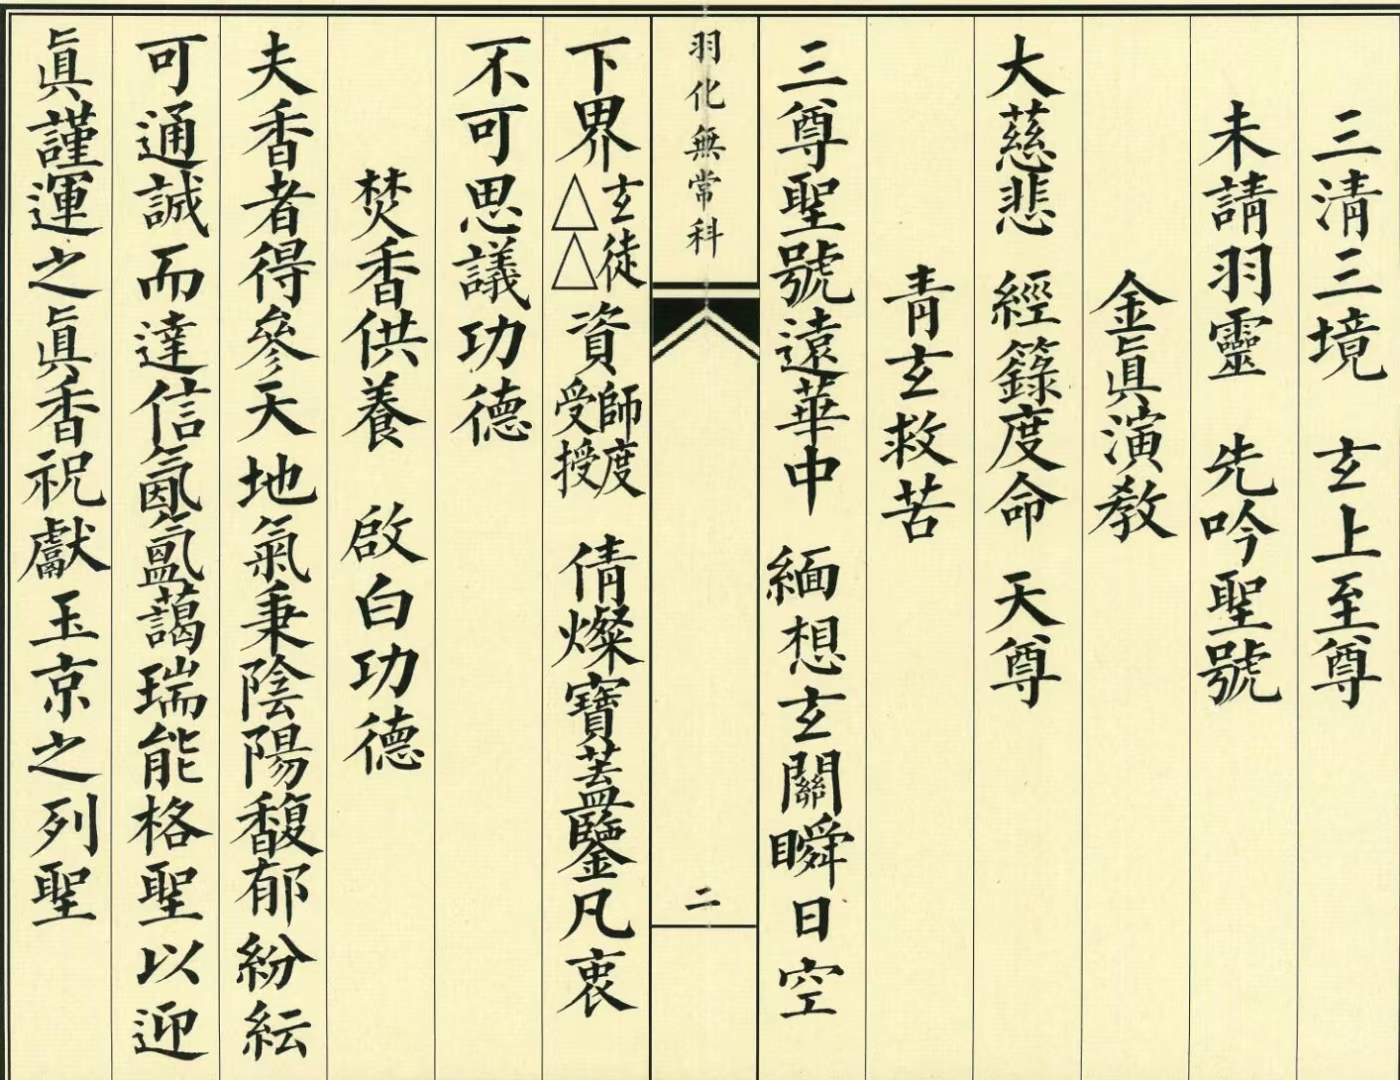 三清三境　玄上至尊
未請羽靈　先吟聖號
金眞演教
大慈悲　經籙度命　天尊
青玄救苦
三尊聖號遠華中　緬想玄關瞬日空
羽化無常科
二
下界玄徒△△資師度受授　倩燦寶蓋鑒凡衷
不可思議功德
焚香供養　啟白功德
夫香者得參天地氣秉陰陽馥郁紛紜
可通誠而達信氤氳藹瑞能格聖以迎
眞謹運之眞香祝獻玉京之列聖